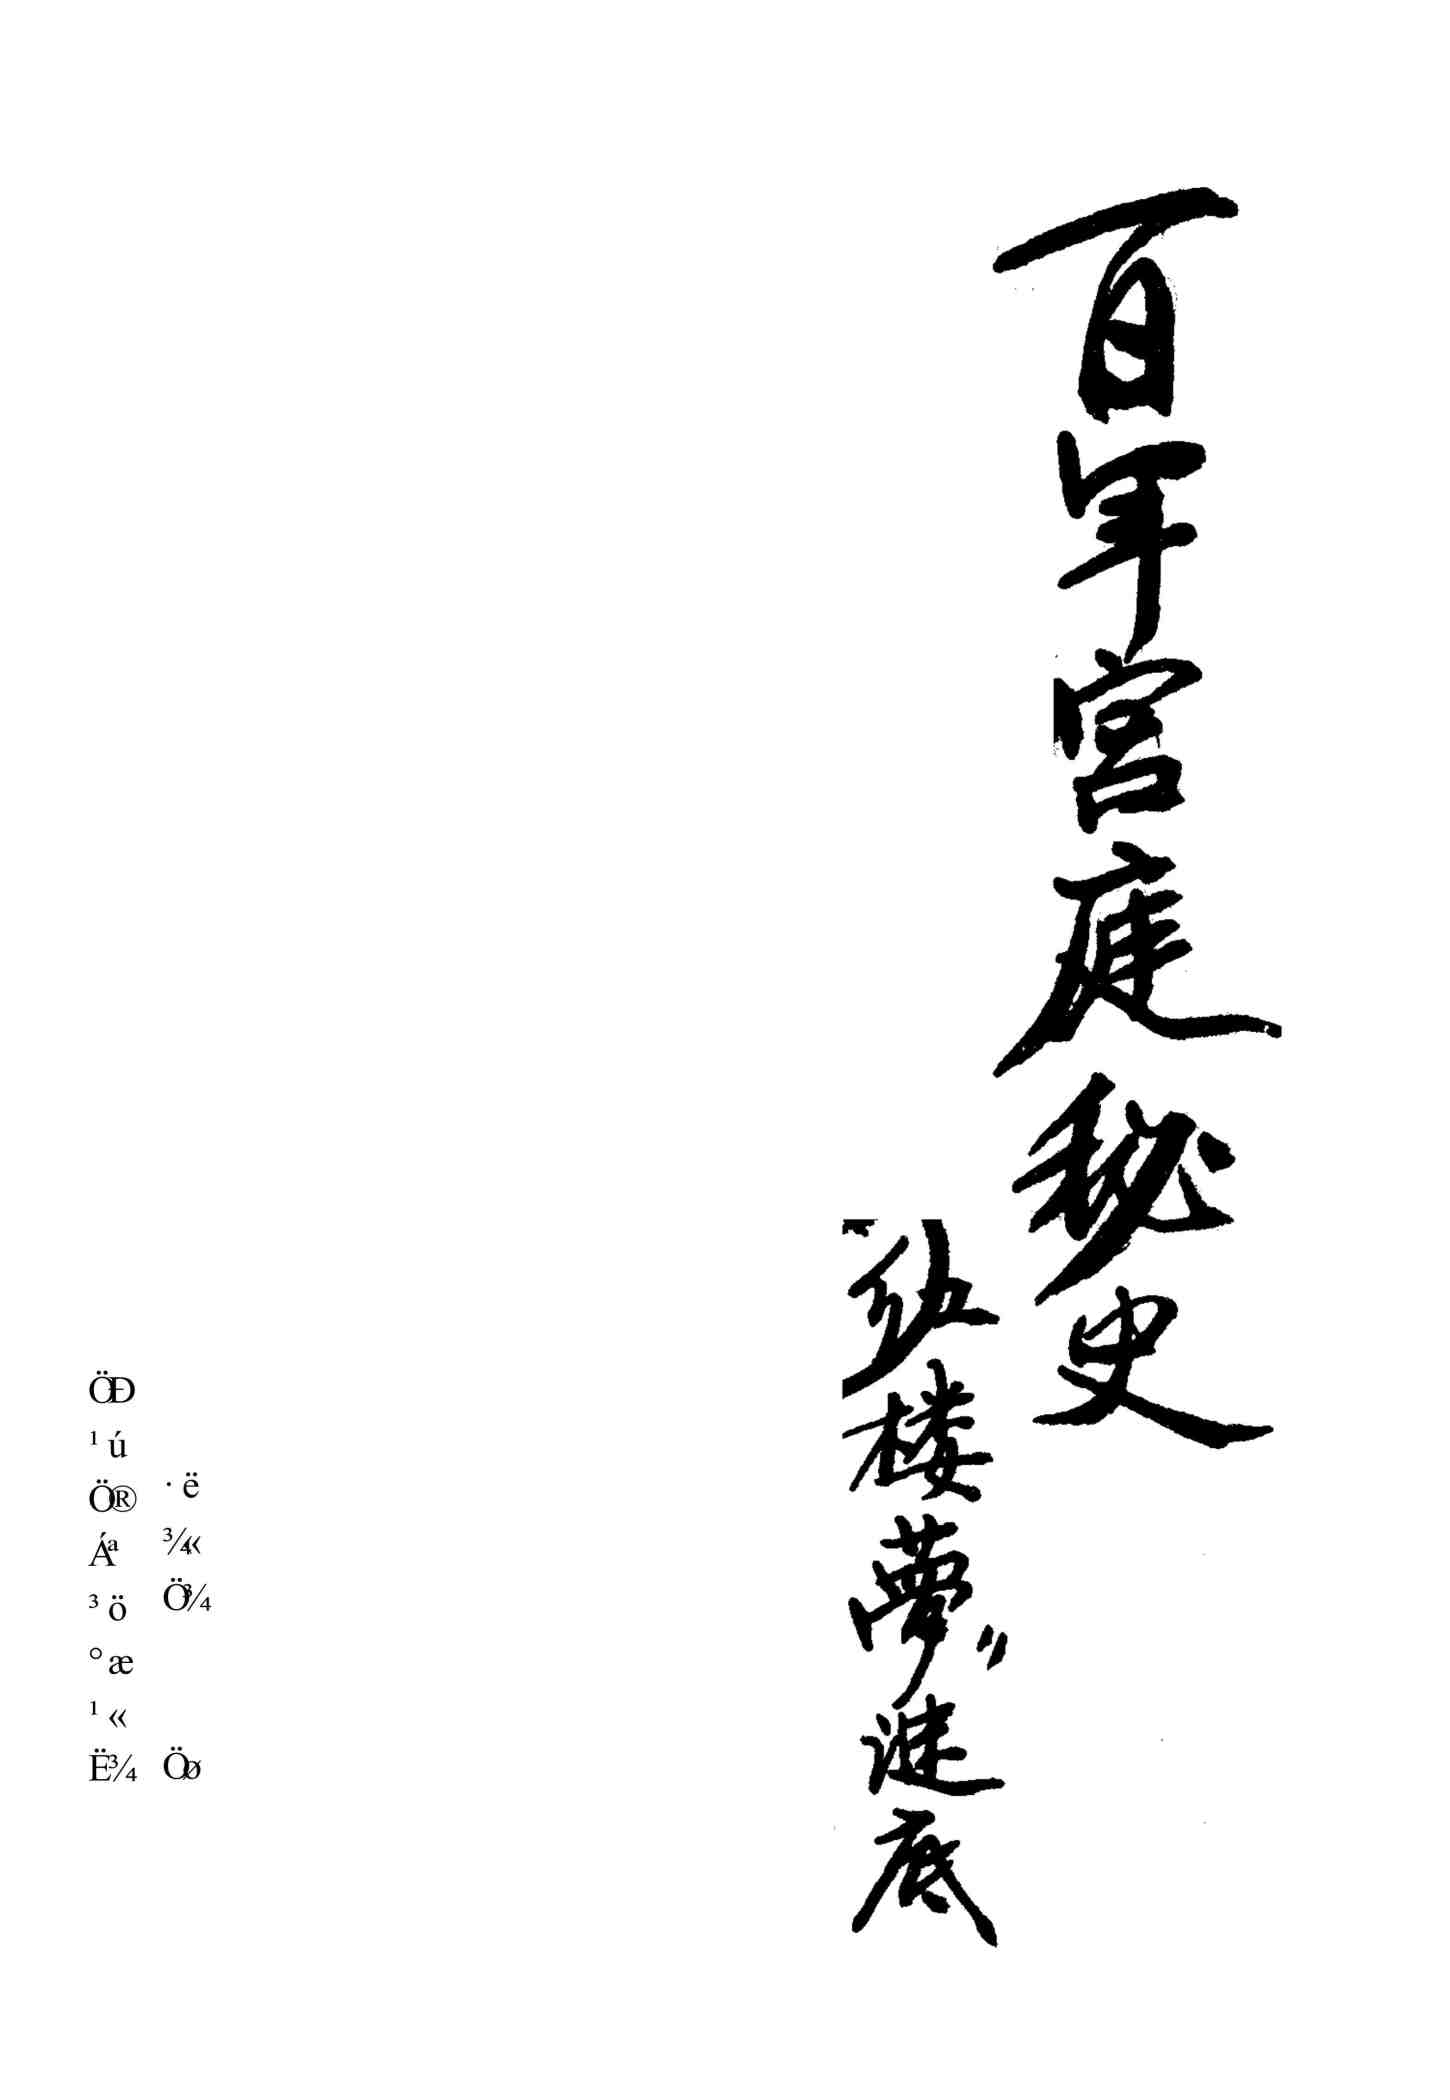 百年宫庭秘史
红楼夢”谜底
·ë ¾« Ö¾ Öø
ÖÐ ¹ú ÖÐ® Áª ³ö °æ ¹« Ë¾